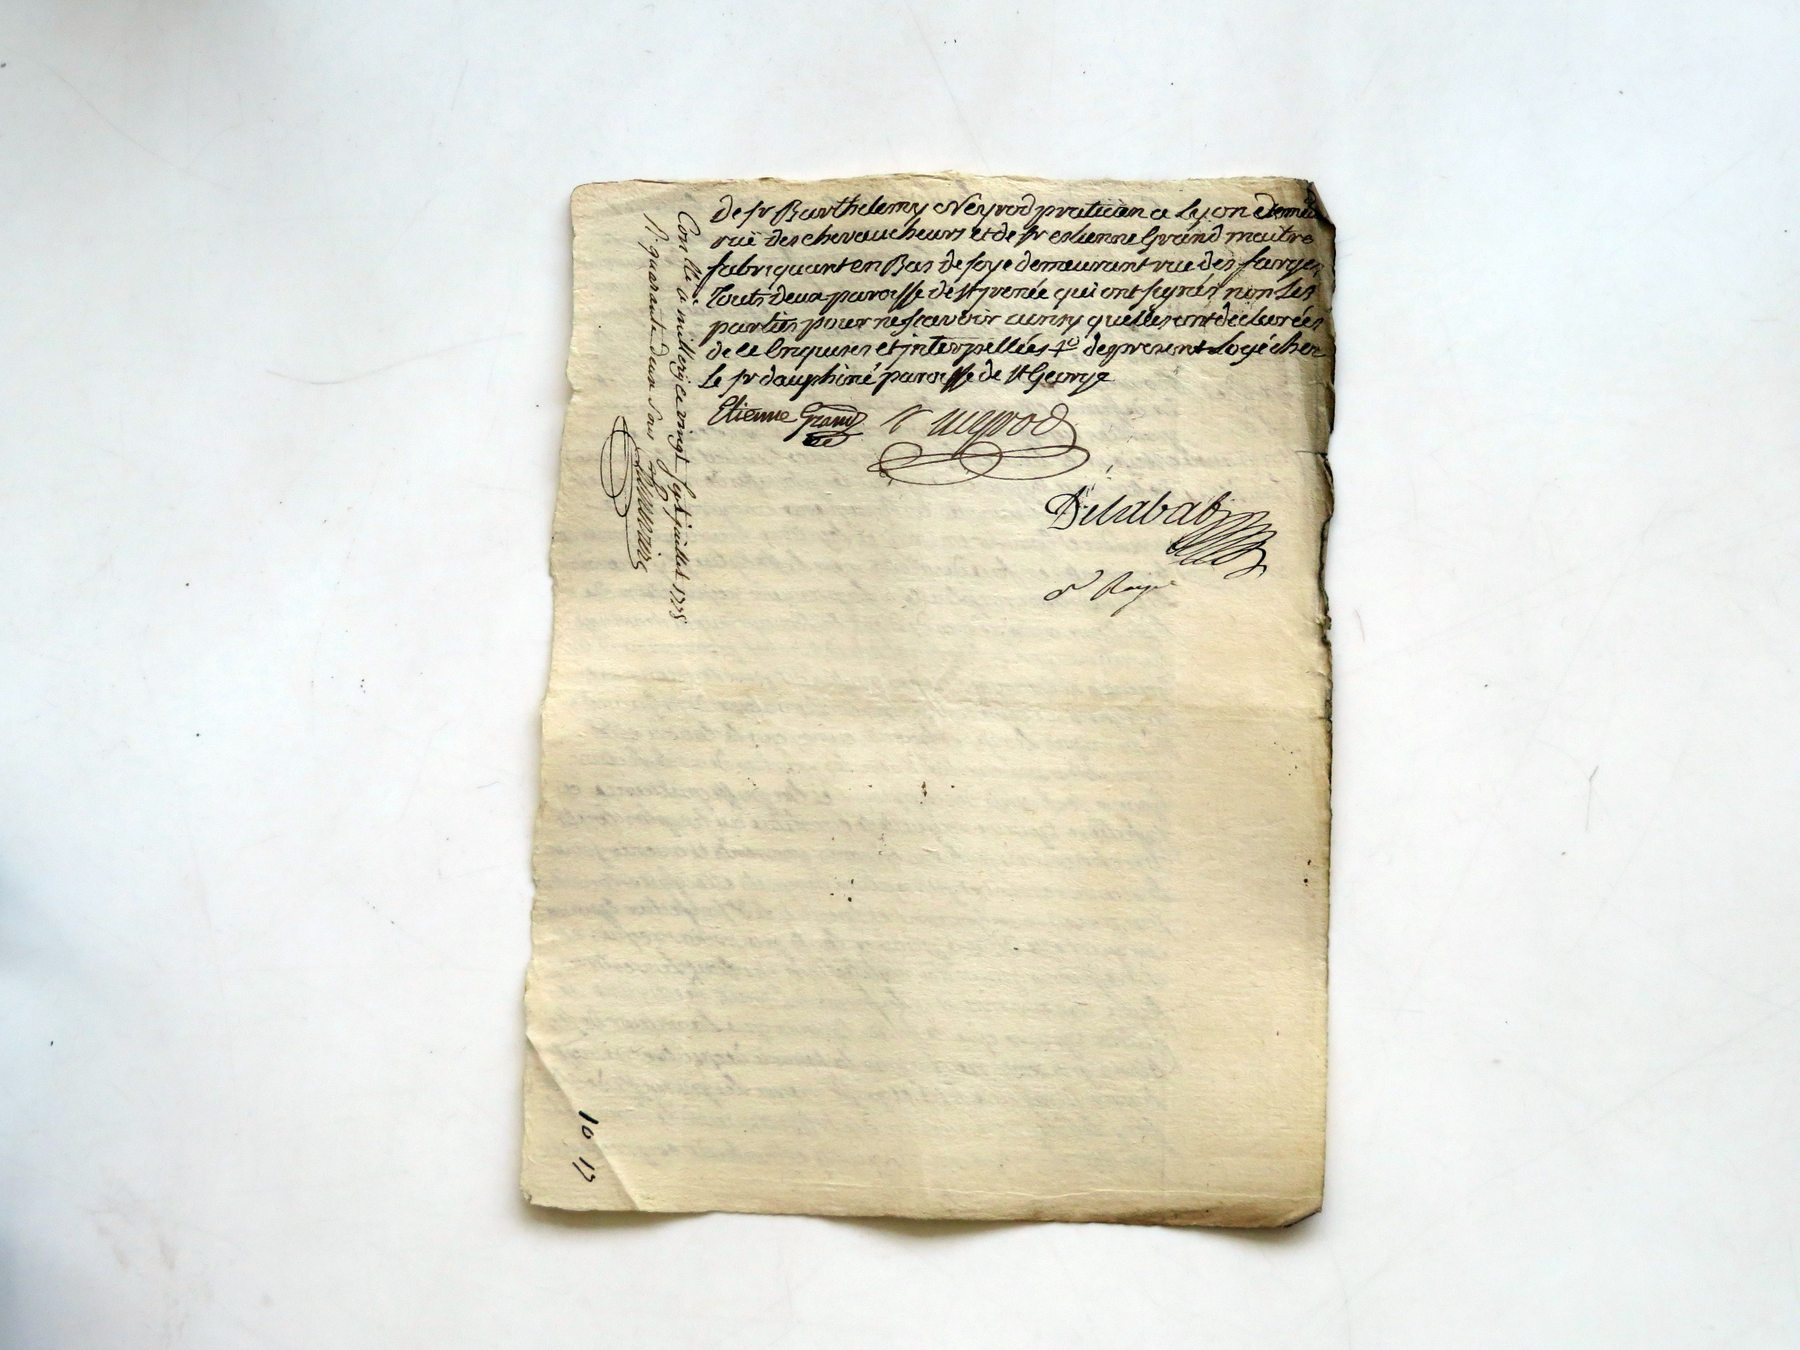 de sr Barthelemy Neyrod praticien a Lyon y demeu
rüe des chevaucheurs et de sr estienne Grand maitre
fabriquant en Bas de soye demeurant rue des farges
touts deux paroisse de st jrenée qui ont signés non les
parties pour ne scavoir ainsy quelles ont déclarées
de ce enquises et jnterpellées de present Logé chez
le sr dauphiné paroisse de st George
Etienne Grand
neyrod
Delabat
Conllé a mill ce vingt sept juillet 1775
quarante deux sous
10 17